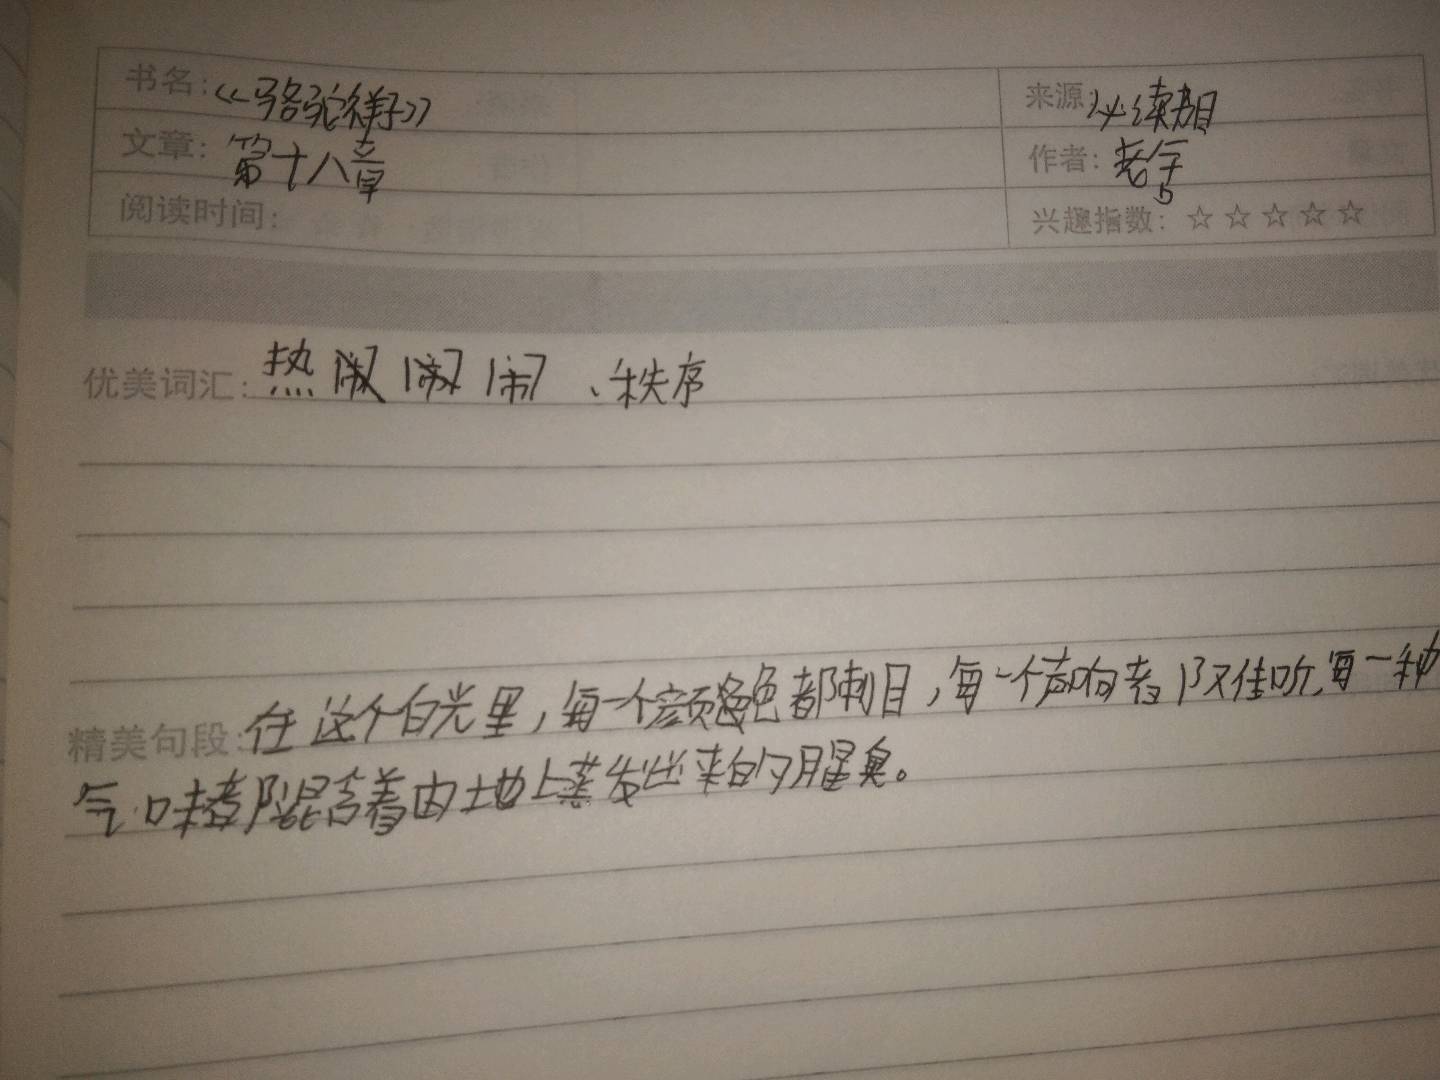 书名：《骆驼祥子》 来源：必读书目
文章：第十八章 作者：老舍
阅读时间： 兴趣指数：☆☆☆☆☆
优美词汇：热闹闹闹、秩序
精美句段：在这个白光里，每一个颜色都刺目，每一个声响都难听，每一种
气味都混含着由地上蒸发出来的腥臭。